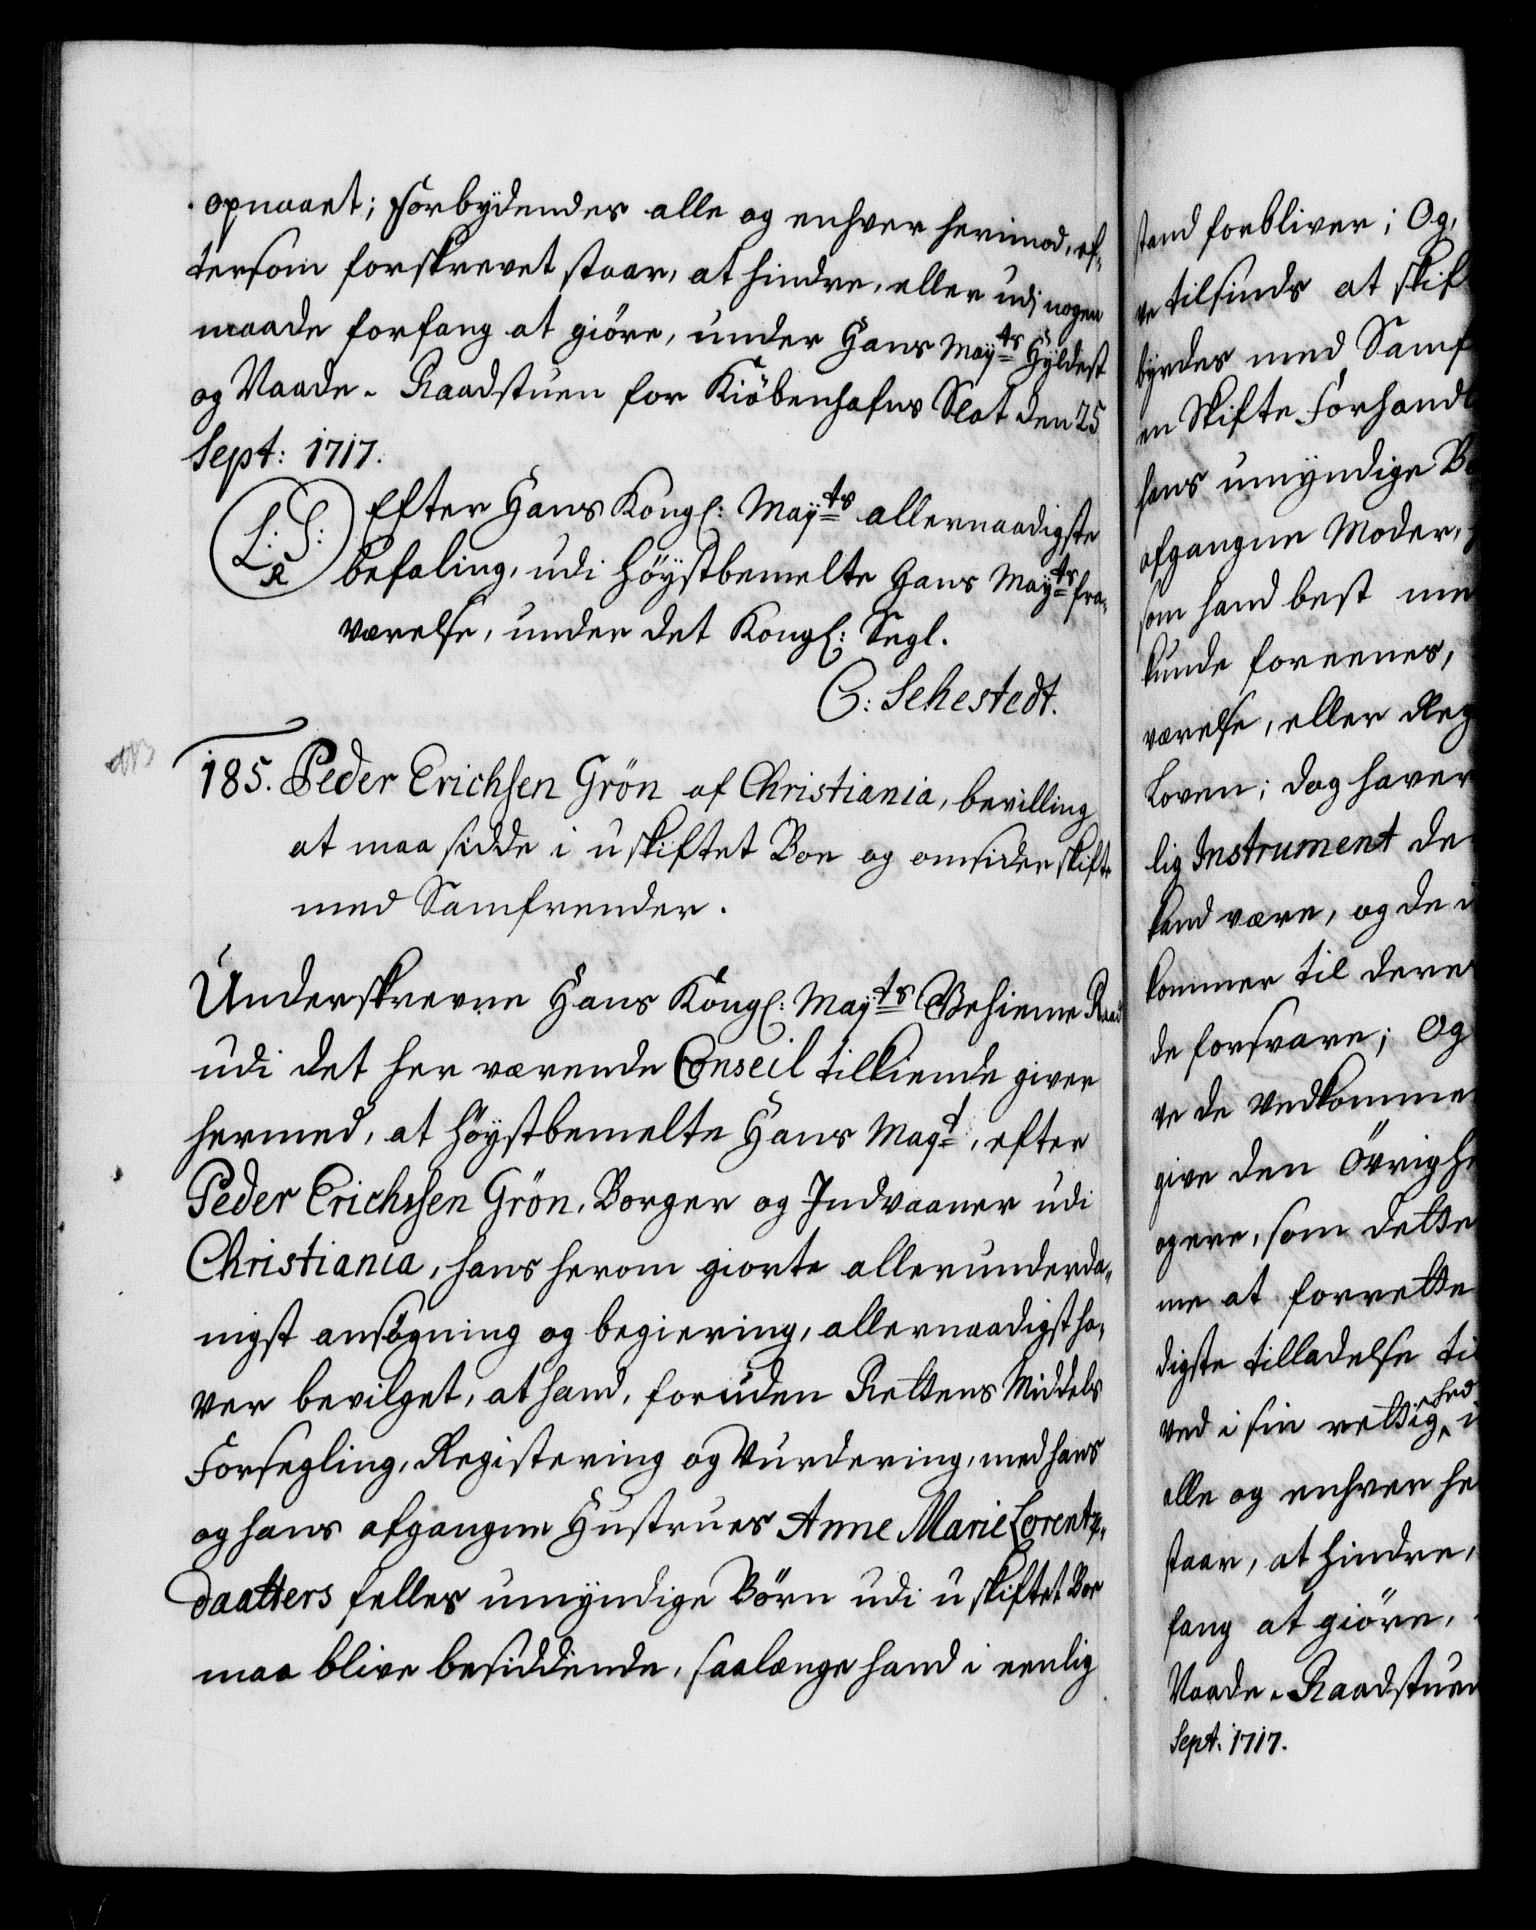 opnaaet; Forbydendes alle og enhver herimod, ef-
tersom forskrevet staar, at hindre, eller udj nogen
maade forfang at giöre, under Hans Mayts Hyldest
og Naade. Raadstuen for Kiöbenhafns Slot den 25
Sept: 1717.
Efter Hans Kongl: Mayts allernaadigste
L: S:
R
befaling, udi höystbemelte Hans Mayts fra-
værelse, under det Kongl: Segl.
C: Sehestedt.
185. Peder Erichsen Grön af Christiania, bevilling
at maa sidde i uskiftet Boe og omsider skifte
med Samfrender.
Underskrevne Hans Kongl: Mayts Gehieme Raad
udi det her værende Conseil tilkiende giver
hermed, at höystbemelte Hans Mayt, efter
Peder Erichssen Grön, Borger og Indvaaner udi
Christiania, hans herom giorte allerunderda-
nigst ansögning og begiering, allernaadigst ha-
ver bevilget, at hand, foruden Rettens Middels
Forsegling, Registering og Vurdering, med hans
og hans afgangne Hustrues Anne Marie Lorentz-
daatters felles umyndige Börn udi uskiftet Boe
maa blive besiddende, saalænge hand i eenlig
stand forbliver; Og,
ve tilsinds at skif
byrdes med Samf
en Skifte Forhandl
hans umyndige Bö
afgangne Moder,
som hand best me
kunde foreenes,
værelse, eller Reg
Loven; dog haver
lig Instrument de
kand være, og de i
kommer til deres
de forsvare; Og
ve de vedkomme
give den Övrighe
ogere, som dette
me at forrette
digste tilladelse til
ved i sin rettighed i
alle og enhver he
staar, at hindre,
fang at giöre,
Naade. Raadstuen
Sept: 1717.